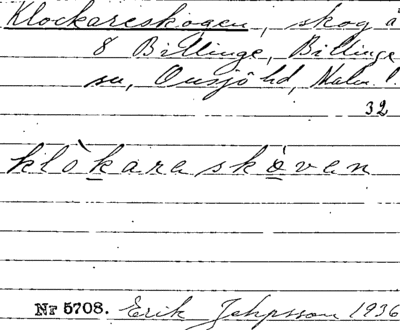 Klockareskogen, skog å
8 Billinge, Billinge
sn, Onsjö hd, Malm. l.
32
klòkaraskòvan
Nr 5708. Erik Jeppsson 1936